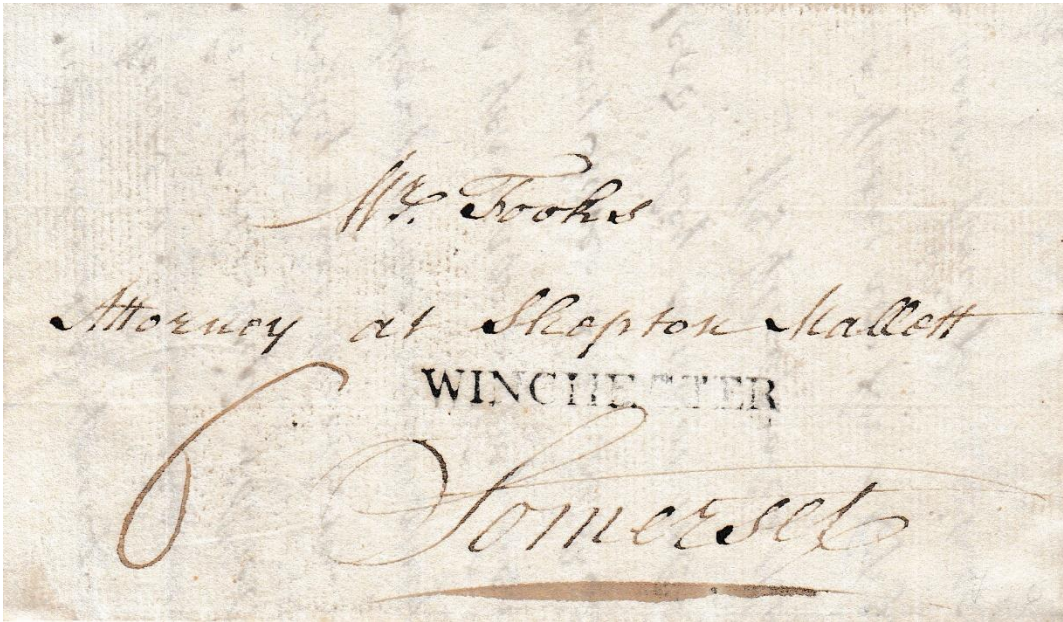 Mr. Fooks
Attorney at Shepton Mallett
WINCHESTER
6
Somerset